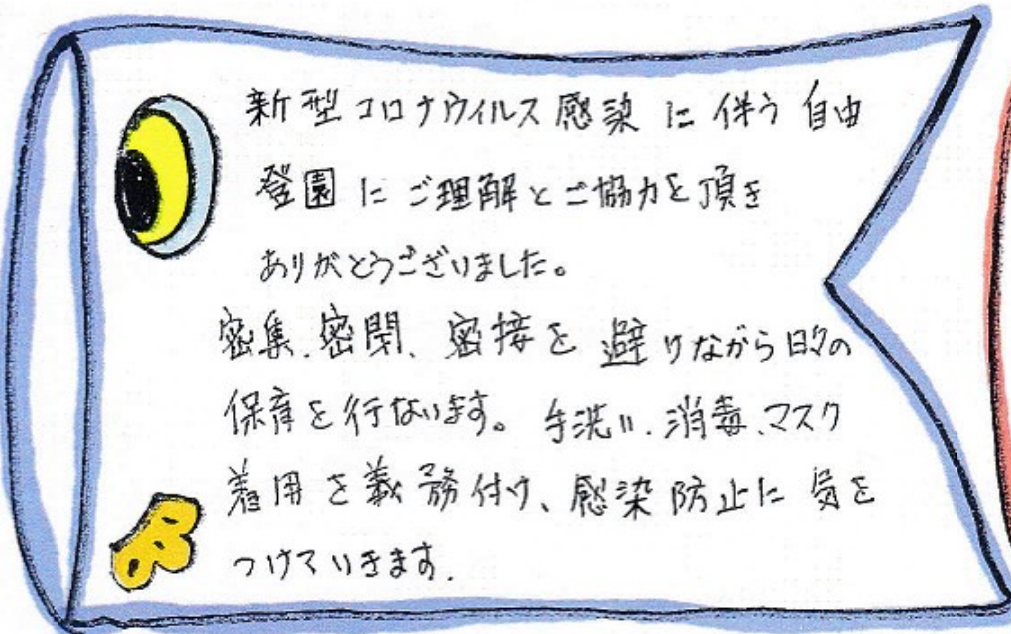 新型コロナウイルス感染に伴う自由
登園にご理解とご協力を頂き
ありがとうございました。
密集、密閉、密接を避けながら日々の
保育を行ないます。手洗い、消毒、マスク
着用を義務付け、感染防止に気を
つけていきます。